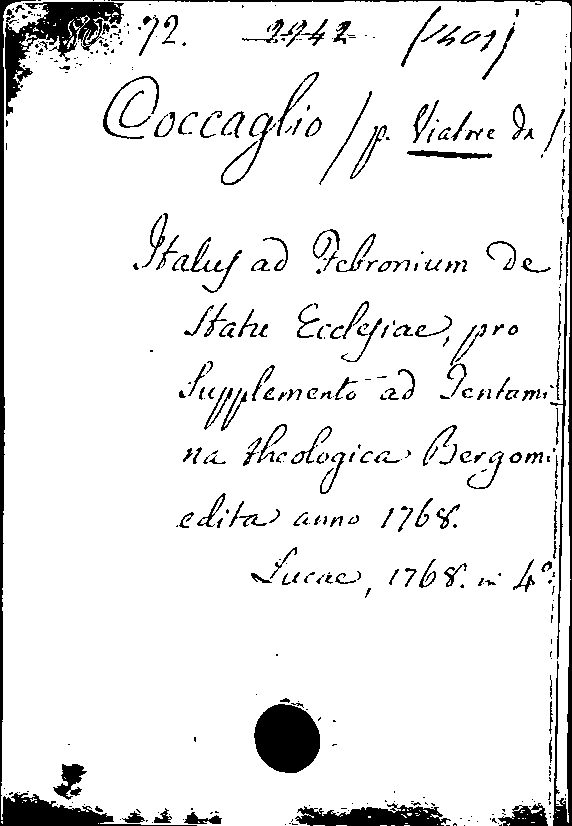 72. 2942 (1401)
Coccaglio / p. Viatore da /
Italus ad Febronium de
Statu Ecclesiae, pro
Supplemento ad Tentami-
na theologica Bergomi
edita anno 1768.
Lucae, 1768. in 4°.